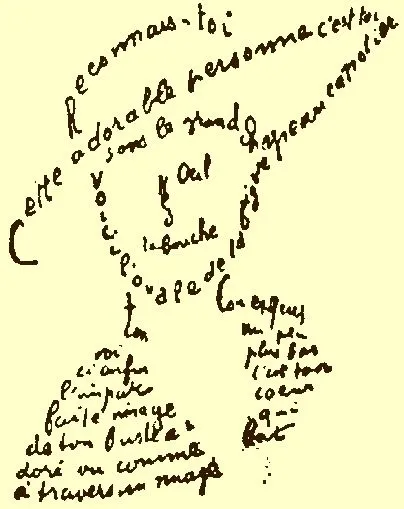 Reconnais-toi
Cette adorable personne c'est toi
sous le grand chapeau canotier
Oeil
Nez
la bouche
Voici l'ovale de ta figure
ton
cou exquis
voi
ci enfin
l'impar
faite image
de ton buste a
doré vu comme
à travers un nuage
un peu
plus bas
c'est ton
coeur
qui
bat